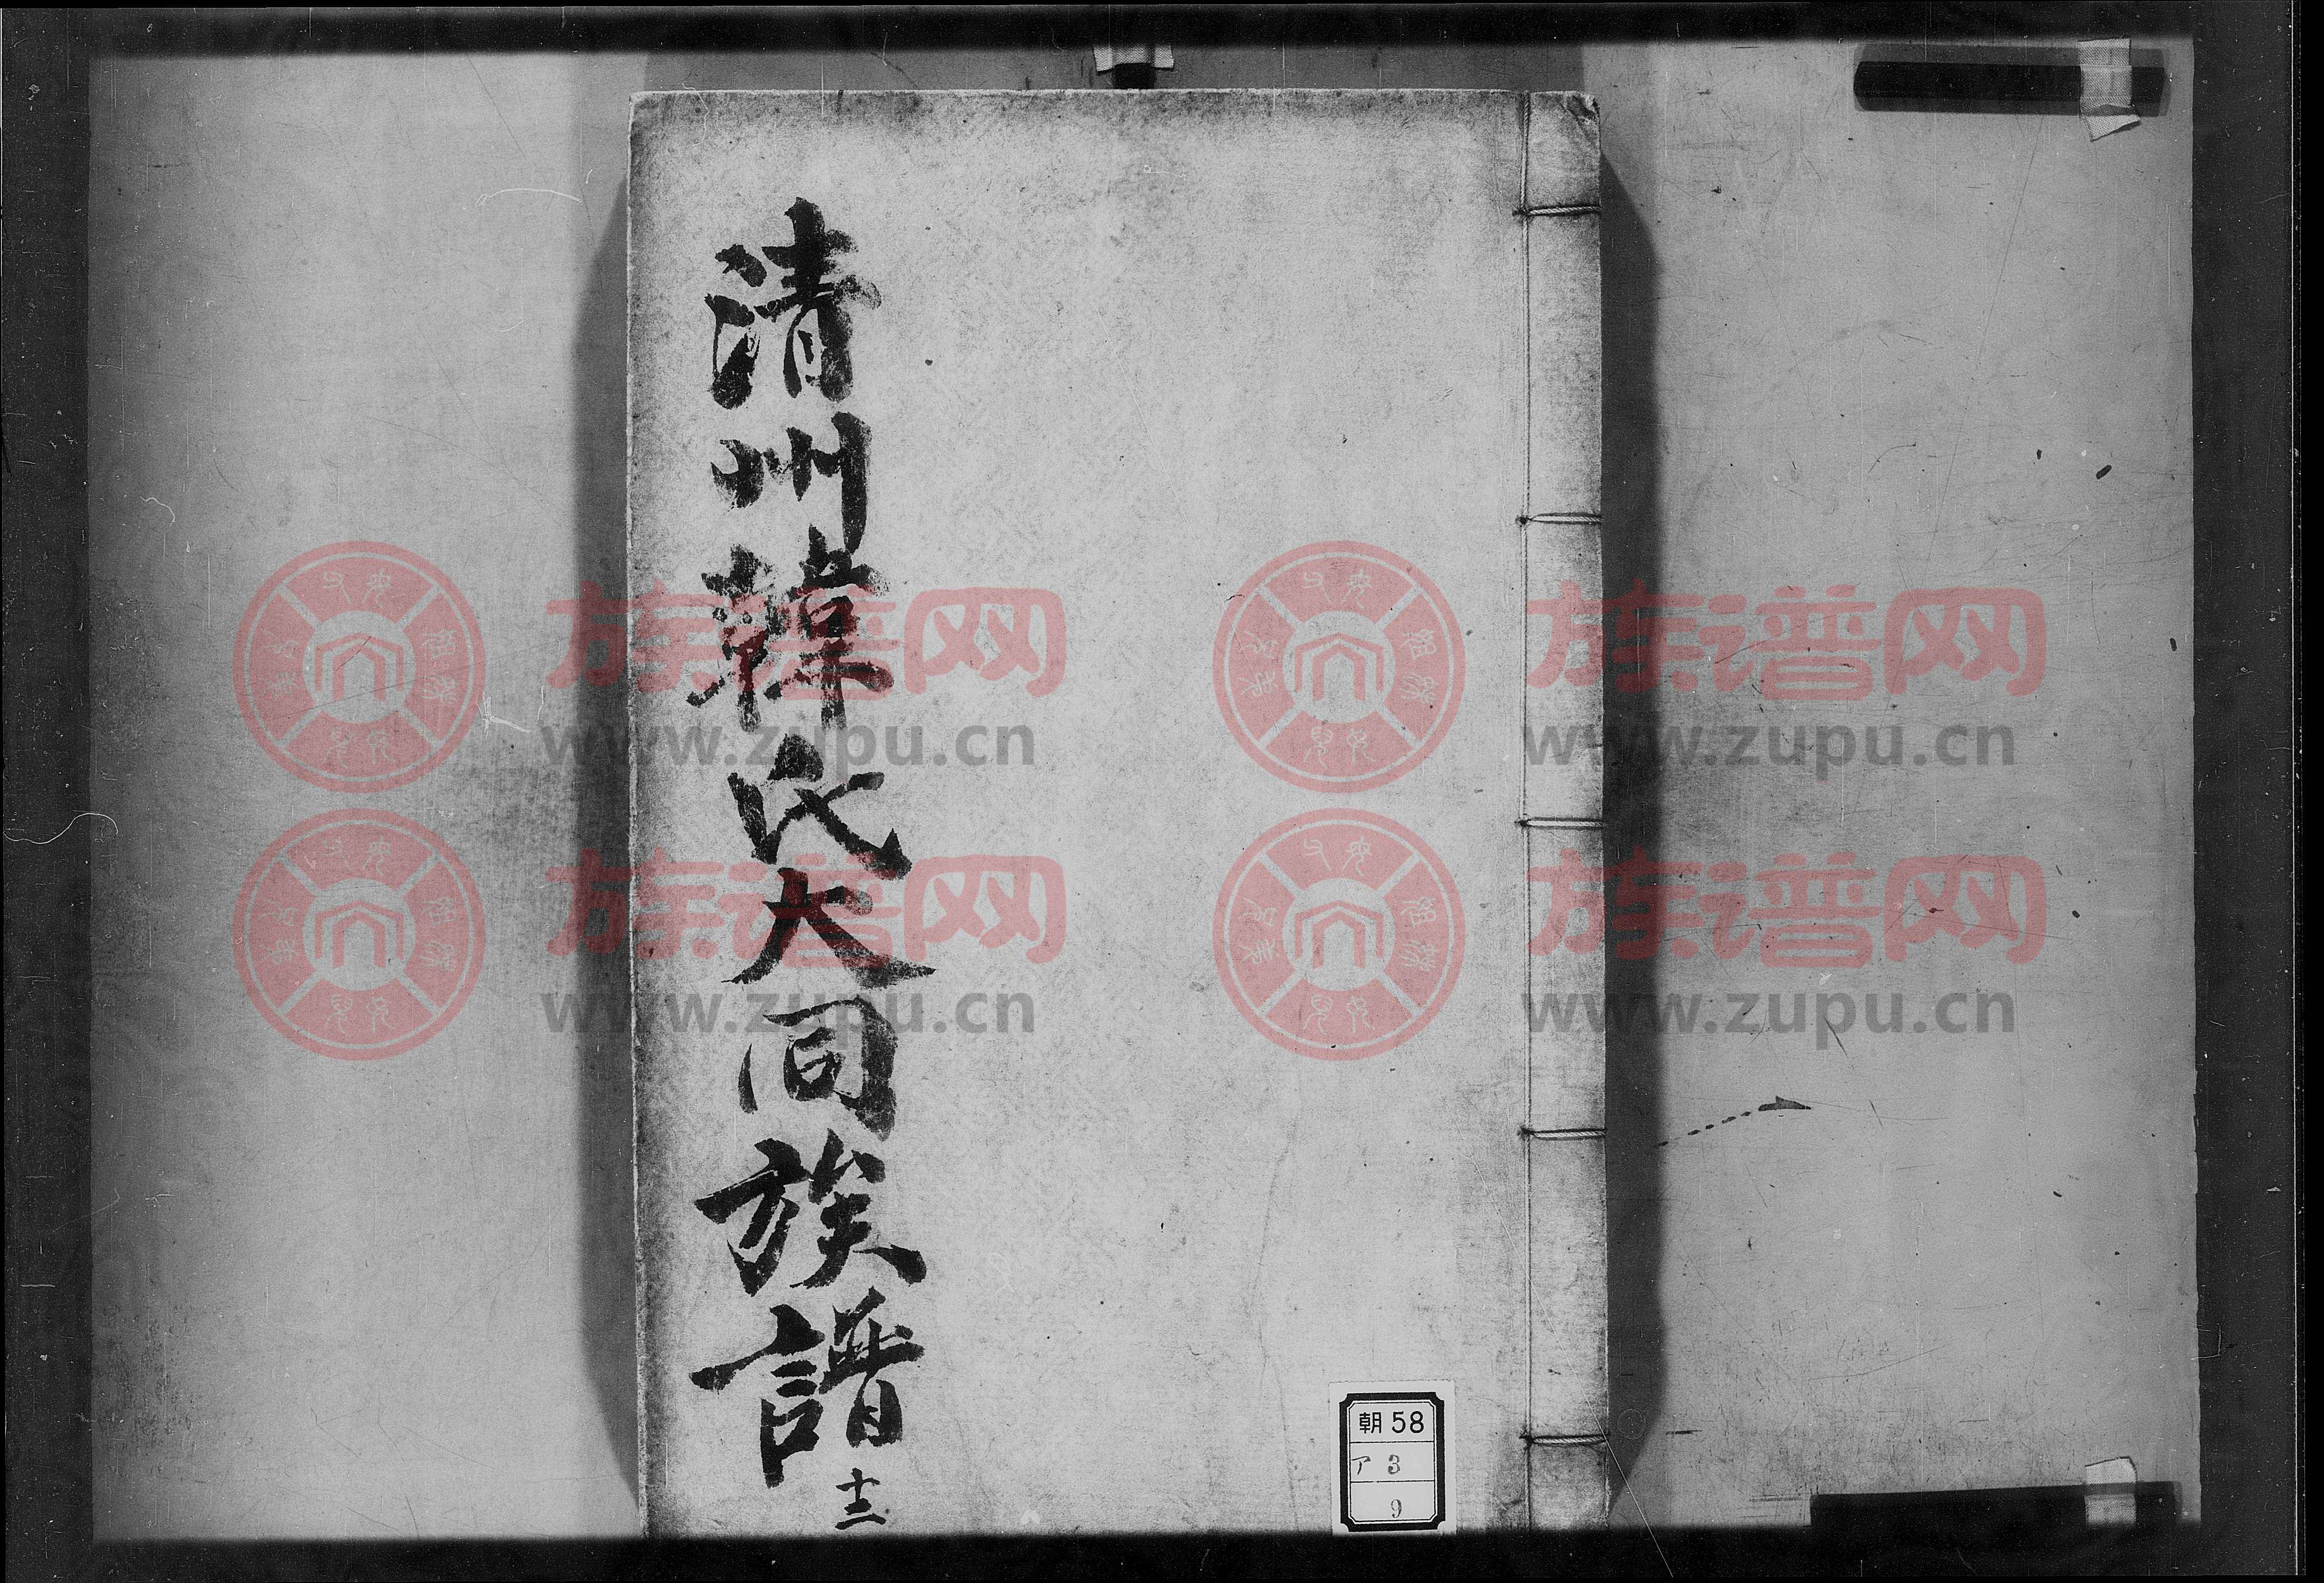 清州韓氏大同族譜
十三
朝 58
ア 3
9
族谱网
www.zupu.cn
族谱网
www.zupu.cn
族谱网
www.zupu.cn
族谱网
www.zupu.cn